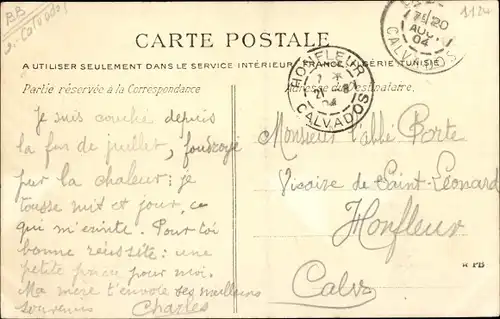 BB
Calvados
1124
20
AOU
04
CALVADOS
CARTE POSTALE
A UTILISER SEULEMENT DANS LE SERVICE INTÉRIEUR, FRANCE, ALGÉRIE, TUNISIE
HONFLEUR
21 8
04
CALVADOS
Partie réservée à la Correspondance
Adresse du destinataire.
Je suis couché depuis
la fin de juillet, foudroyé
par la chaleur; je
tousse nuit et jour, ce
qui m'éreinte. Pour toi
bonne réussite: une
petite prière pour moi.
Ma mère t'envoie ses meilleurs
souvenirs Charles
Monsieur l'abbé Porte
Vicaire de Saint-Léonard
Honfleur
Calv